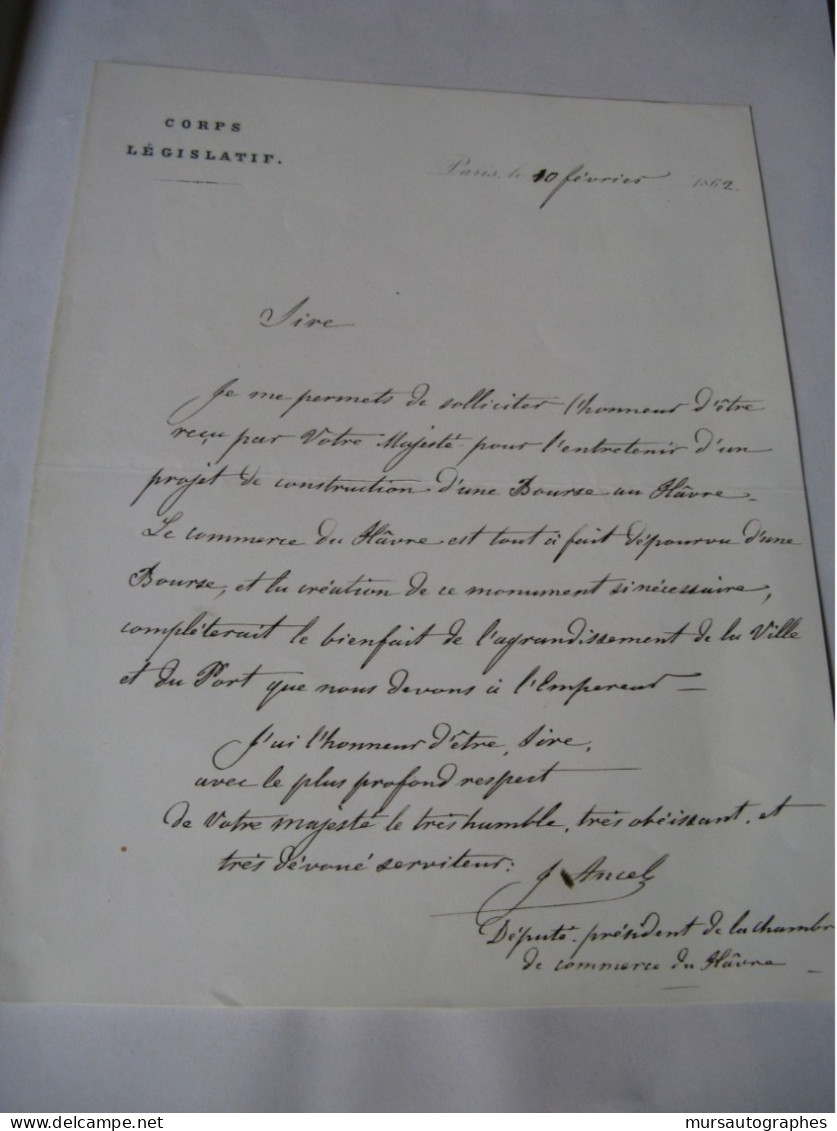 CORPS
LÉGISLATIF.
Paris, le 10 février 1862.
Sire
Je me permets de solliciter l'honneur d'être
reçu par Votre Majesté pour l'entretenir d'un
projet de construction d'une Bourse au Hâvre.
Le commerce du Hâvre est tout à fait dépourvu d'une
Bourse, et la création de ce monument si nécessaire,
complèterait le bienfait de l'agrandissement de la Ville
et du Port que nous devons à l'Empereur —
J'ai l'honneur d'être, Sire,
avec le plus profond respect
de Votre majesté le très humble, très obéissant, et
très dévoué serviteur:
J Ancel
Député. président de la chambr
de commerce du Hâvre —
delcampe.net
mursautographes